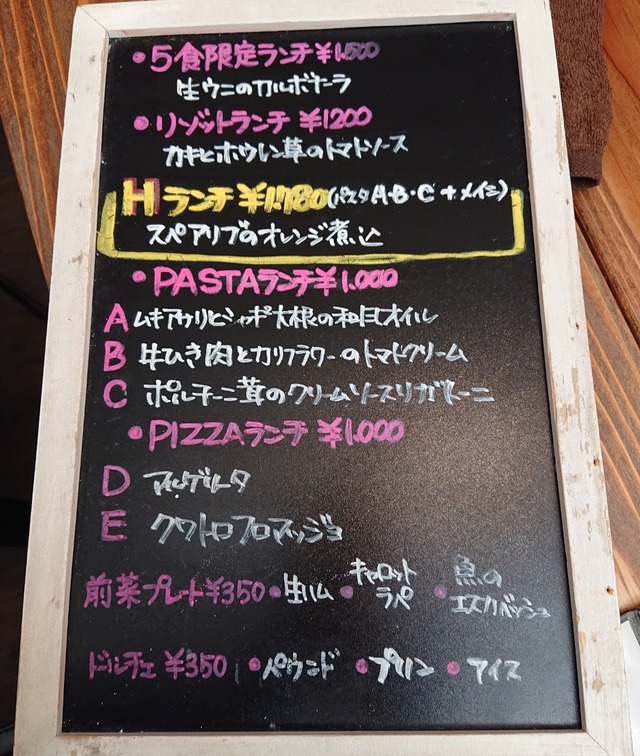 ・5食限定ランチ¥1,500
生ウニのカルボナーラ
・リゾットランチ ¥1200
カキとホウレン草のトマトソース
Hランチ ¥1780(パスタA・B・C+メイン)
スペアリブのオレンジ煮込
・PASTAランチ¥1,000
A ムキアサリとシャポ大根の和風オイル
B 牛ひき肉とカリフラワーのトマトクリーム
C ポルチーニ茸のクリームソースリガトーニ
・PIZZAランチ ¥1,000
D マルゲリータ
E クワトロフロマッジョ
前菜プレート¥350 ・生ハム ・キャロットラペ ・魚のエスカベッシュ
ドルチェ ¥350 ・パウンド ・プリン ・アイス